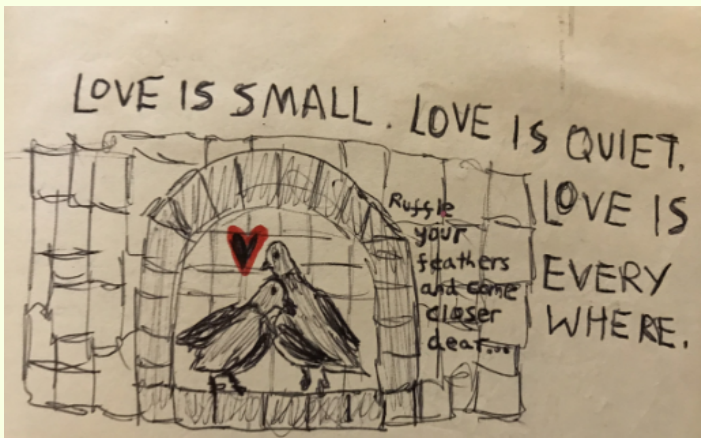 LOVE IS SMALL. LOVE IS QUIET.
LOVE IS
EVERY
WHERE.
Ruffle
your
feathers
and come
closer
dear...